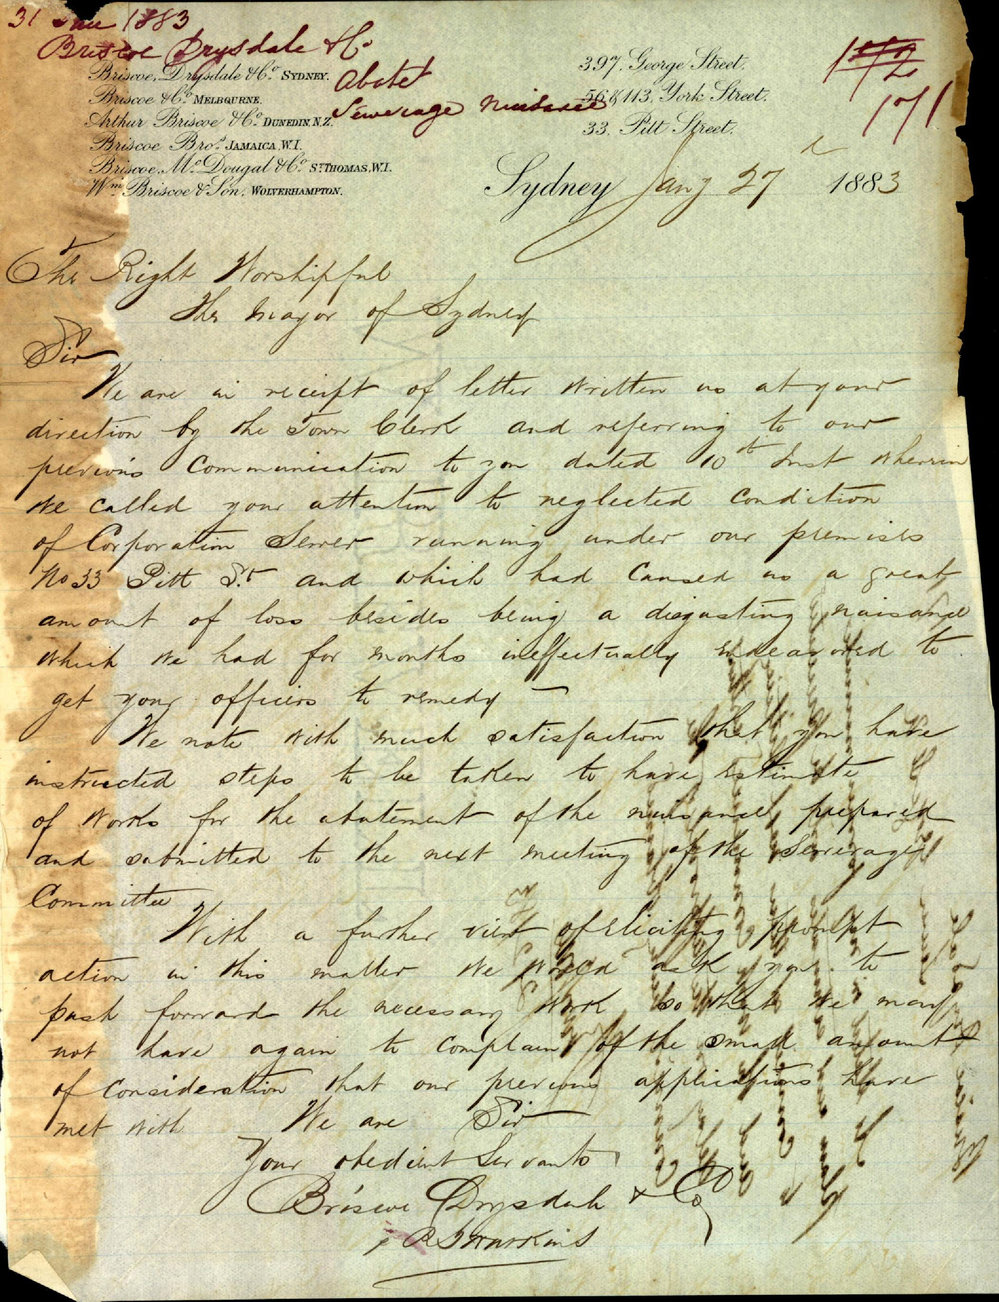 31 Jan 1883
Briscoe Drysdale & Co
Abate
Sewerage nuisance
172
171
Briscoe, Drysdale & Co. SYDNEY.
Briscoe & Co. MELBOURNE.
Arthur Briscoe & Co. DUNEDIN, N.Z.
Briscoe Bros. JAMAICA, W.I.
Briscoe, McDougal & Co. ST THOMAS, W.I.
Wm Briscoe & Son, WOLVERHAMPTON.
397, George Street,
56 & 113, York Street.
33, Pitt Street.
Sydney Jany 27th 1883
The Right Worshipful
The Mayor of Sydney
Sir
We are in receipt of letter written us at your
direction by the Town Clerk and referring to our
previous communication to you dated 10th Inst wherein
we called your attention to neglected condition
of Corporation Sewer running under our premises
No 33 Pitt St and which had caused us a great
amount of loss besides being a disgusting nuisance
which we had for months ineffectually endeavored to
get your officers to remedy —
We note with much satisfaction that you have
instructed steps to be taken to have estimate
of works for the abatement of the nuisance prepared
and submitted to the next meeting of the Sewerage
Committee
With a further view of eliciting prompt
action in this matter we would ask you to
push forward the necessary work so that we may
not have again to complain of the small amount
of consideration that our previous applications have
met with We are Sir
Your obedient Servants
Briscoe Drysdale & Co